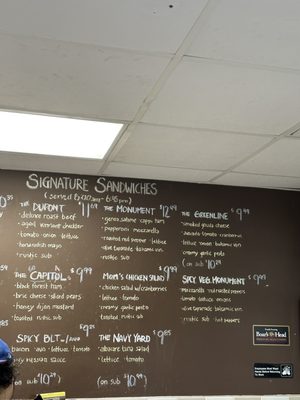 SIGNATURE SANDWICHES
(served 10:30am - 6:45pm)
THE DUPONT $11.69
· deluxe roast beef
· aged vermont cheddar
· tomato · onion · lettuce
· horseradish mayo
· rustic sub
THE CAPITOL $9.99
· black forest ham
· brie cheese · sliced pears
· honey dijon mustard
· toasted rustic sub
SKY BLT $9.29
bacon · avo · lettuce · tomato
(on sub $10.29)
THE MONUMENT $12.49
· genoa salame · capp. ham
· pepperoni · mozzarella
· roasted red pepper · lettuce
· olive tapenade · balsamic vin.
· toasted rustic sub
MOM'S CHICKEN SALAD $9.99
· chicken salad w/cranberries
· lettuce · tomato
· creamy garlic pesto
· toasted rustic sub
THE NAVY YARD $9.85
· albacore tuna salad
· lettuce · tomato
(on sub $10.99)
THE GREENLINE $9.99
· smoked gouda cheese
· avocado · tomato · cucumbers
· lettuce · onion · balsamic vin.
· creamy garlic pesto
(on sub $10.29)
SKY VEG. MONUMENT $9.99
· mozzarella · red roasted peppers
· tomato · lettuce · onions
· olive tapenade · balsamic vin.
· rustic sub · hot peppers
Boar's Head